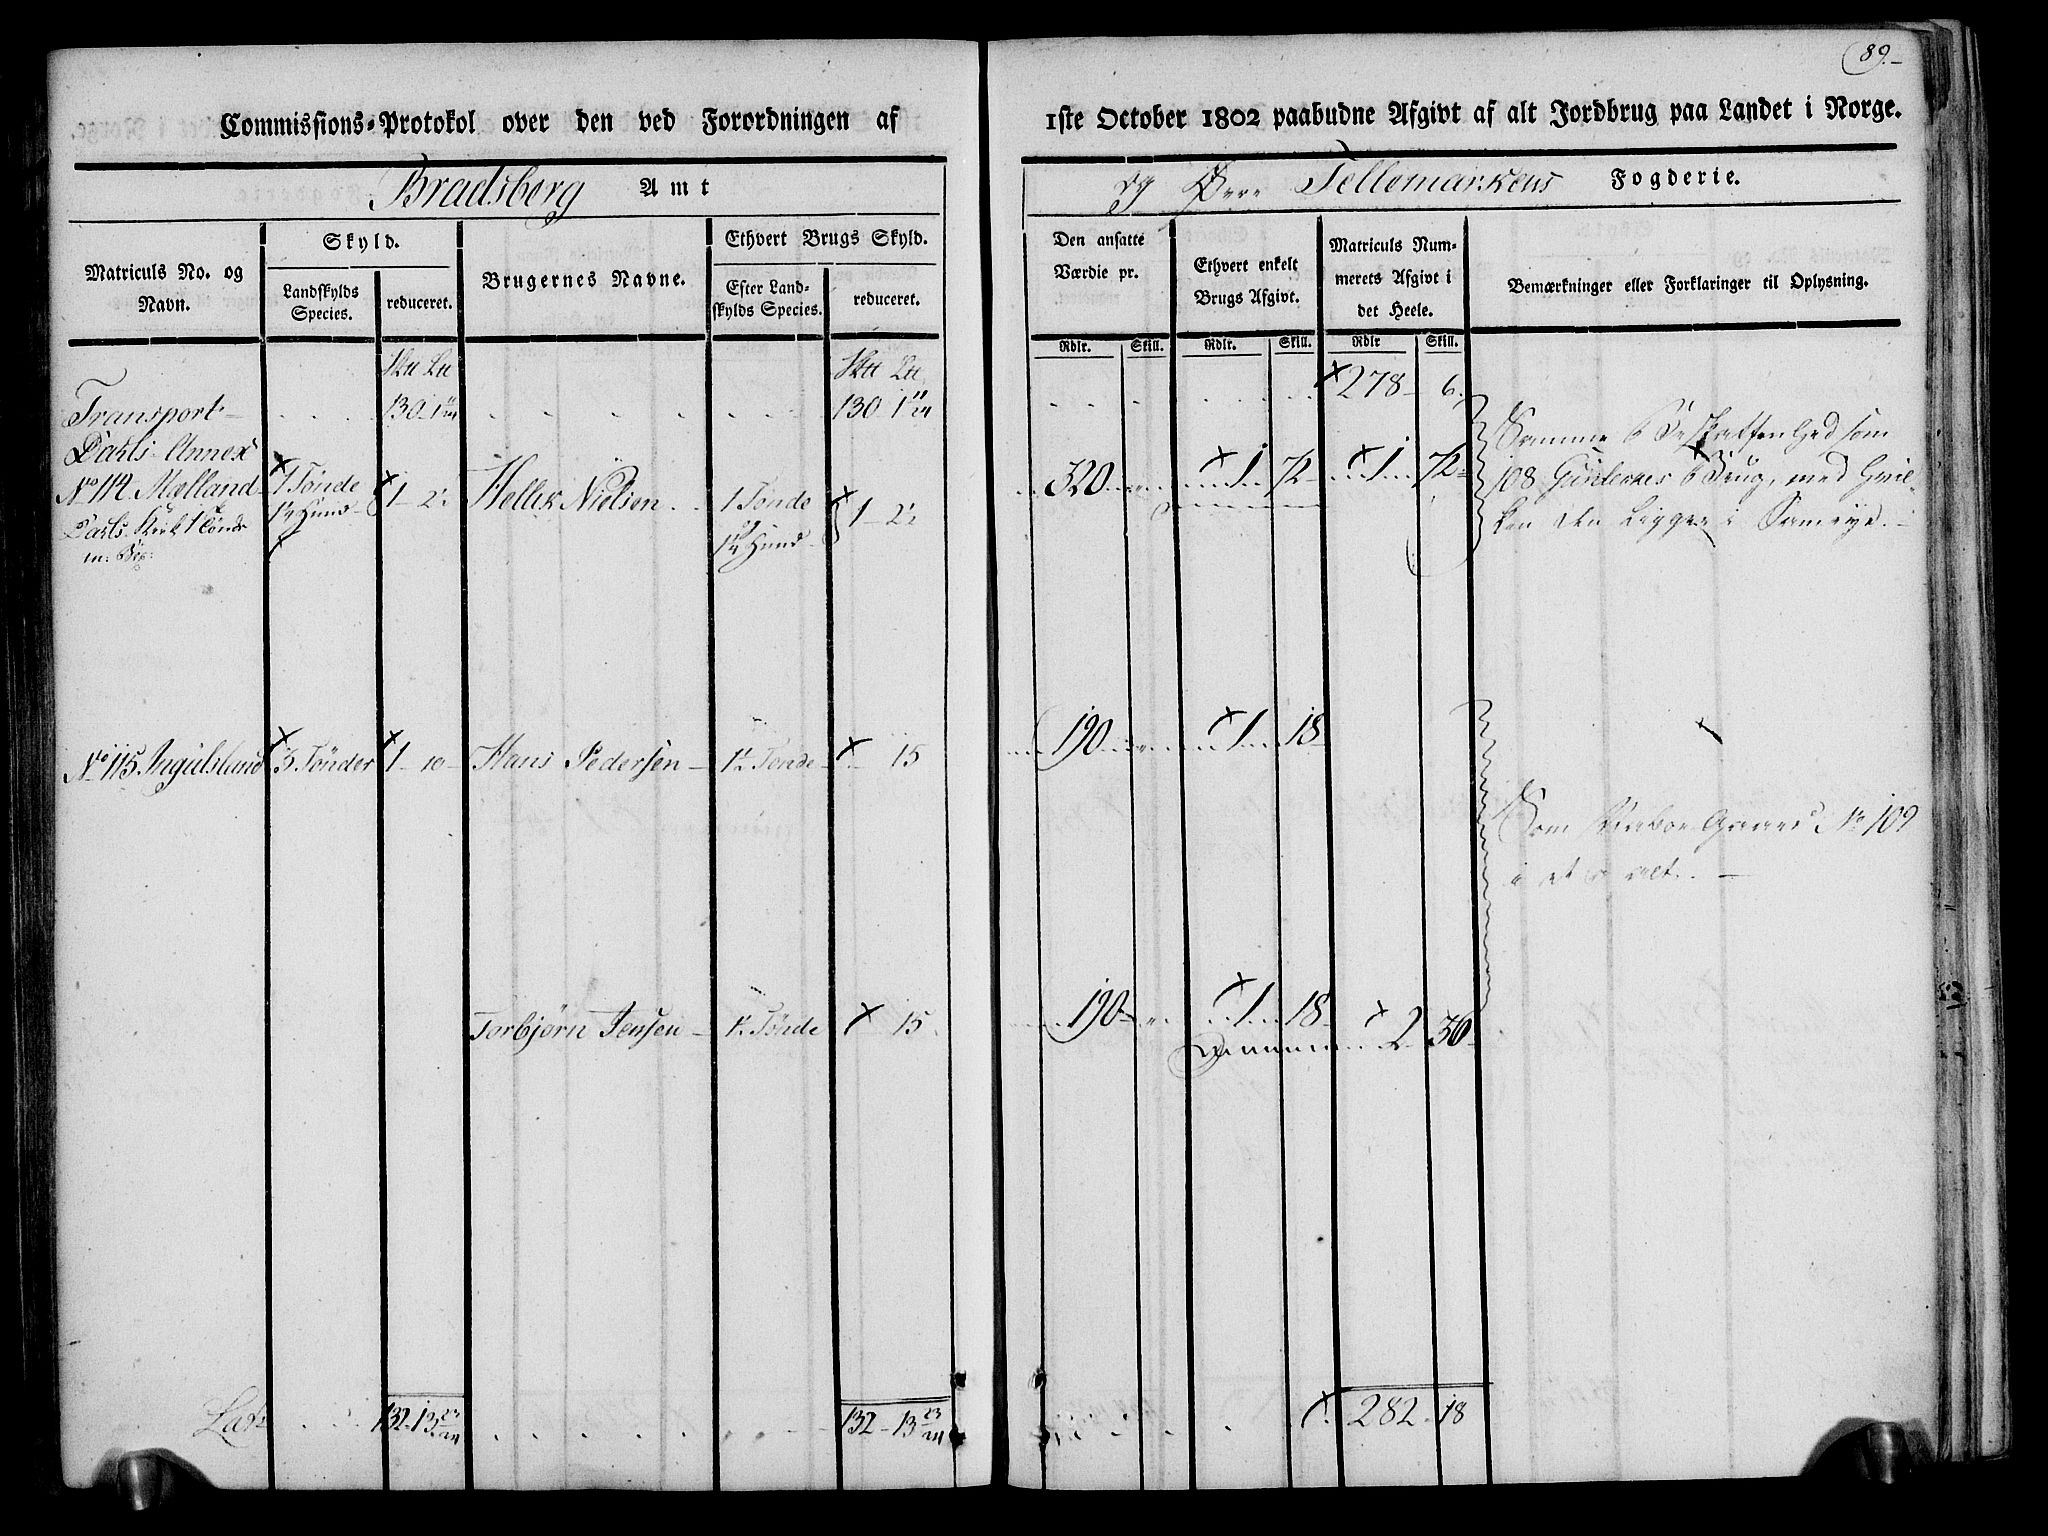 89.
Commissions-Protokol over den ved Forordningen af 1ste October 1802 paabudne Afgivt af alt Jordbrug paa Landet i Norge.
Bradsberg Amt og Øvre Tellemarkens Fogderie.
Matriculs No. og Navn.
Skyld.
Landskylds Species.
reduceret.
Brugernes Navne.
Ethvert Brugs Skyld.
Efter Landskylds Species.
reduceret.
Den ansatte Værdie pr.
Ethvert enkelt Brugs Afgivt.
Matriculs Nummerets Afgivt i det Heele.
Bemærkninger eller Forklaringer til Oplysning.
Rdlr. Skill. Rdlr. Skill. Rdlr Skill.
Transport 130 1 11/24 130 1 11/24 278 6
Annex
No 114 Mælland 1 Tønde 1 2½ Hellik Nielsen 1 Tønde 1 2½ 320 1 72 1 72
1¼ Hund 1¼ Hund
Samme Beskaffenhed som
108 Brug, med hvil-
ken den ligger i
No 115 Ingulsland 3 Tønder 1 10 Hans Pedersen 1½ Tønde 15 190 1 18
Som Gaard No 109
i et og alt.
Torbjørn Jensen 1½ Tønde 15 190 1 18 2 36
Lat. 132 13 23/24 132 13 23/24 282 18